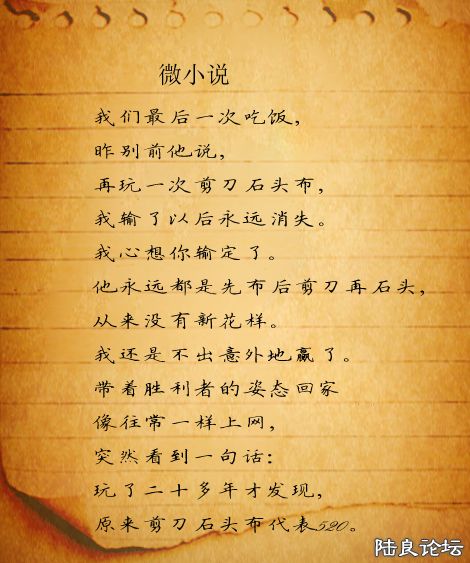 微小说
我们最后一次吃饭，
昨别前他说，
再玩一次剪刀石头布，
我输了以后永远消失。
我心想你输定了。
他永远都是先布后剪刀再石头，
从来没有新花样。
我还是不出意外地赢了。
带着胜利者的姿态回家
像往常一样上网，
突然看到一句话：
玩了二十多年才发现，
原来剪刀石头布代表520。
陆良论坛